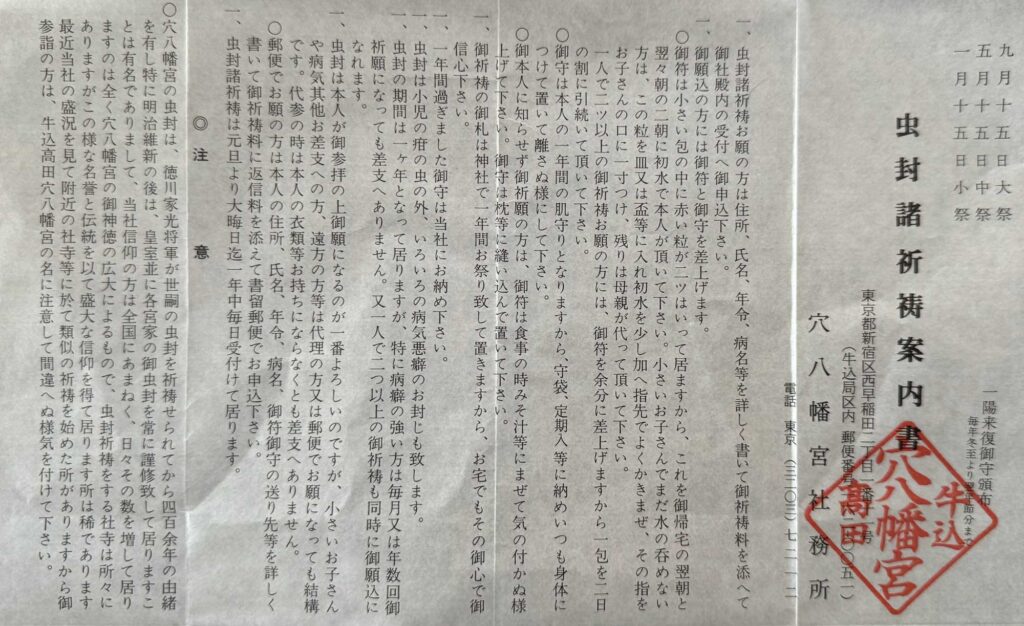 九月十五日大祭
五月十五日中祭
一月十五日小祭
一陽来復御守頒布
毎年冬至より翌年節分まで
虫封諸祈祷案内書
東京都新宿区西早稲田二丁目一番十一号
(牛込局区内 郵便番号一六二-〇〇五一)
穴八幡宮社務所
電話 東京 (三二〇三) 七二一二
牛込
穴八幡宮
高田
一、虫封諸祈祷お願の方は住所、氏名、年令、病名等を詳しく書いて御祈祷料を添へて
御社殿内の受付へ御申込下さい。
一、御願込の方には御符と御守を差上げます。
〇御符は小さい包の中に赤い粒が二ツはいって居ますから、これを御帰宅の翌朝と
翌々朝の二朝に初水で本人が頂いて下さい。小さいお子さんでまだ水の呑めない
方は、この粒を皿又は盃等に入れ初水を少し加へ指先でよくかきまぜ、その指を
お子さんの口に一寸つけ、残りは母親が代って頂いて下さい。
一人で二ツ以上の御祈祷お願の方には、御符を余分に差上げますから一包を二日
の割に引続いて頂いて下さい。
〇御守は本人の一年間の肌守りとなりますから、守袋、定期入等に納めいつも身体に
つけて置いて離さぬ様にして下さい。
〇御本人に知らせず御祈願の方は、御符は食事の時みそ汁等にまぜて気の付かぬ様
上げて下さい。御守は枕等に縫い込んで置いて下さい。
一、御祈祷の御札は神社で一年間お祭り致して置きますから、お宅でもその御心で御
信心下さい。
一、一年間過ぎました御守は当社にお納め下さい。
一、虫封は小児の疳の虫の外、いろいろの病気悪癖のお封じも致します。
一、虫封の期間は一ヶ年となって居りますが、特に病癖の強い方は毎月又は年数回御
祈願になっても差支へありません。又一人で二つ以上の御祈祷も同時に御願込に
なれます。
一、虫封は本人が御参拝の上御願になるのが一番よろしいのですが、小さいお子さん
や病気其他お差支への方、遠方の方等は代理の方又は郵便でお願になっても結構
です。代参の時は本人の衣類等お持ちにならなくとも差支へありません。
〇郵便でお願の方は本人の住所、氏名、年令、病名、御符御守の送り先等を詳しく
書いて御祈祷料に返信料を添えて書留郵便でお申込下さい。
一、虫封諸祈祷は元旦より大晦日迄一年中毎日受付けて居ります。
◎注意
〇穴八幡宮の虫封は、徳川家光将軍が世嗣の虫封を祈祷せられてから四百余年の由緒
を有し特に明治維新の後は、皇室並に各宮家の御虫封を常に謹修致して居りますこ
とは有名でありまして、当社信仰の方は全国にあまねく、日々その数を増して居り
ますのは全く穴八幡宮の御神徳の広大によるもので、虫封祈祷をする社寺は所々に
ありますがこの様な名誉と伝統を以て盛大な信仰を得て居ります所は稀であります
最近当社の盛況を見て附近の社寺等に於て類似の祈祷を始めた所がありますから御
参詣の方は、牛込高田穴八幡宮の名に注意して間違へぬ様気を付けて下さい。